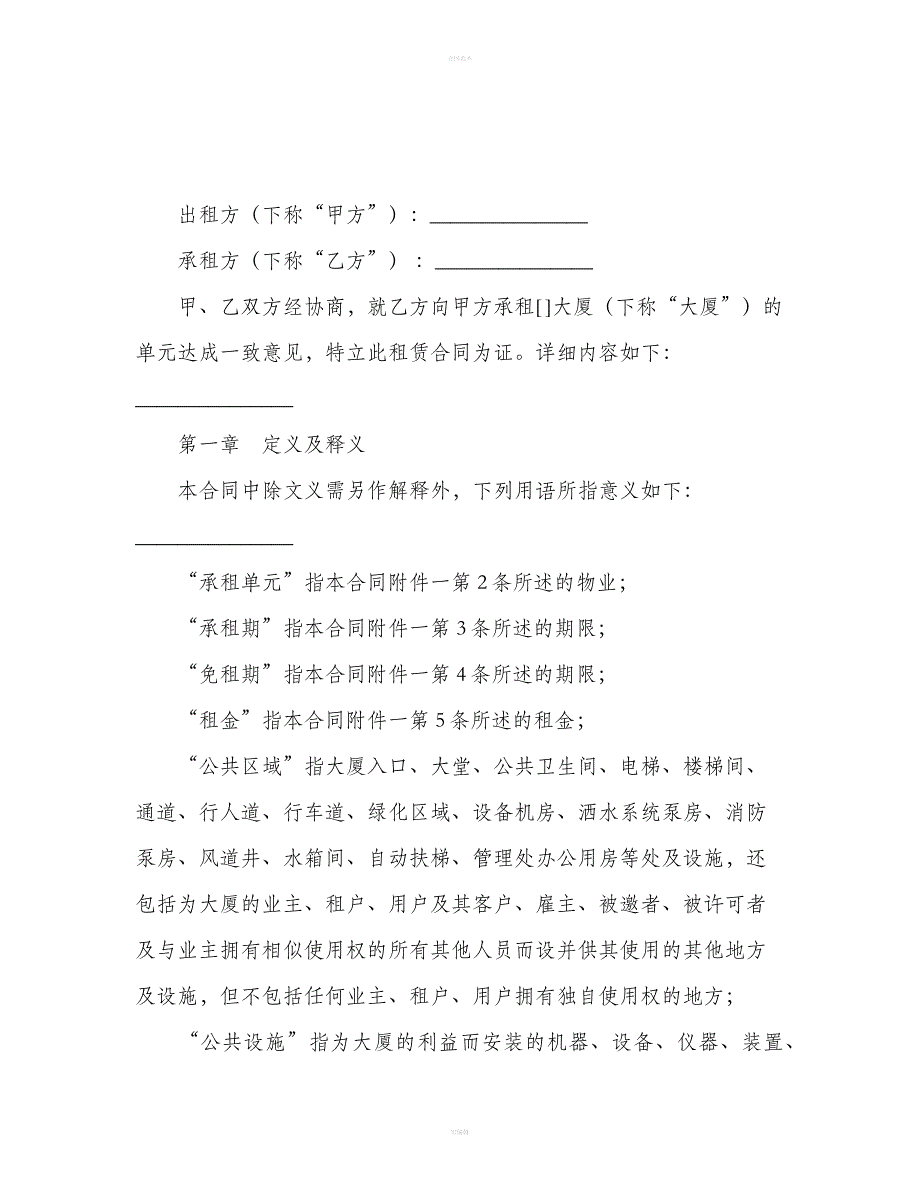 出租方（下称“甲方”）：_______________
承租方（下称“乙方”）：_______________
甲、乙双方经协商，就乙方向甲方承租[]大厦（下称“大厦”）的
单元达成一致意见，特立此租赁合同为证。详细内容如下：
_______________
第一章　定义及释义
本合同中除文义需另作解释外，下列用语所指意义如下：
_______________
“承租单元”指本合同附件一第2条所述的物业；
“承租期”指本合同附件一第3条所述的期限；
“免租期”指本合同附件一第4条所述的期限；
“租金”指本合同附件一第5条所述的租金；
“公共区域”指大厦入口、大堂、公共卫生间、电梯、楼梯间、
通道、行人道、行车道、绿化区域、设备机房、洒水系统泵房、消防
泵房、风道井、水箱间、自动扶梯、管理处办公用房等处及设施，还
包括为大厦的业主、租户、用户及其客户、雇主、被邀者、被许可者
及与业主拥有相似使用权的所有其他人员而设并供其使用的其他地方
及设施，但不包括任何业主、租户、用户拥有独自使用权的地方；
“公共设施”指为大厦的利益而安装的机器、设备、仪器、装置、